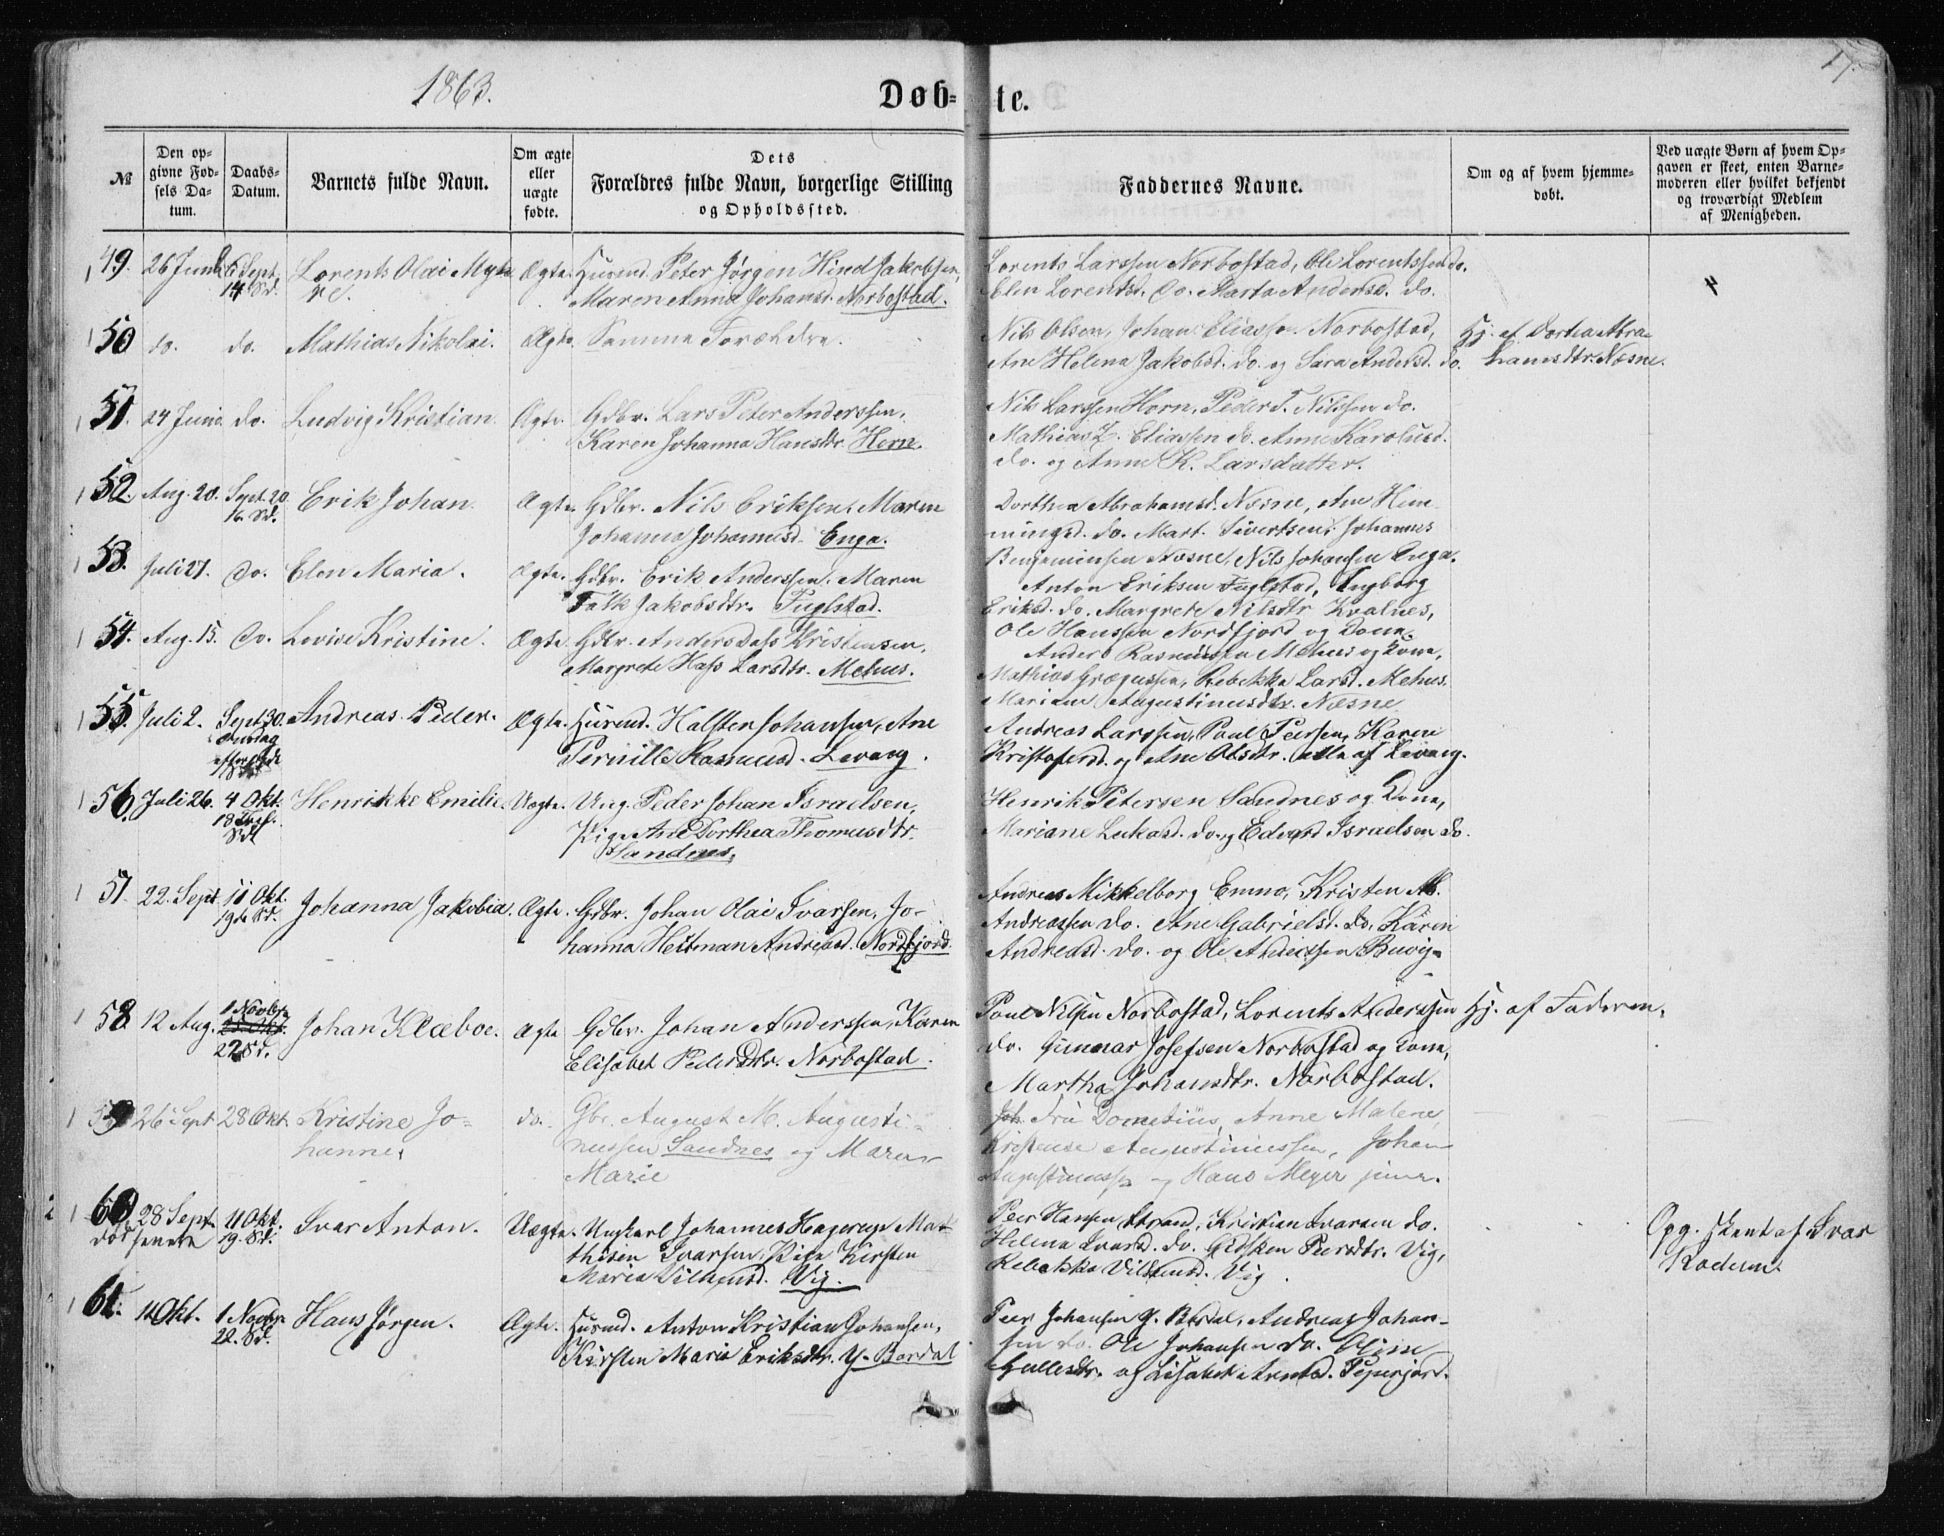 1863.
Døb-te.
17.
№
Den op-
givne Fød-
sels Da-
tum.
Daabs-
Datum.
Barnets fulde Navn.
Om ægte
eller
uægte
fødte.
Dets
Forældres fulde Navn, borgerlige Stilling
og Opholdssted.
Faddernes Navne.
Om og af hvem hjemme-
døbt.
Ved uægte Børn af hvem Op-
gaven er skeet, enten Barne-
moderen eller hvilket bekjendt
og troværdigt Medlem
af Menigheden.
49. 26 Juni Sept. Lorents Olai Ægte. Husmd. Peter Jørgen Hind Jakobsen, Lorents Larssen Norbostad, Ole Lorentssen do.
14. Sd. Maren Anna Johansd. Norbostad. Elen Lorentsd. do. Marta Andersd. do.
50 do. do. Mathias Nikolai. Ægte. Samme Forældre. Nils Olsen, Johan Eliassen Norbostad, Hj. af Dorthea Abra-
Ane Helena Jakobsd. do. og Sara Andersd. do. hamsdtr. Næsne.
51. 24 Juni. do. Ludvig Kristian. Ægte. Gdbr. Lars Peter Anderssen, Nils Larssen Horn, Peder T. Nilssen do.
Karen Johanna Hansdtr. Horn. Mathias Z. Eliassen do. Anne Karolusd.
do. og Anne K. Larsdatter.
52. Aug. 20. Sept. 20 Erik Johan. Ægte. Gdbr. Nils Eriksen, Maren Dorthea Abrahamsd. Næsne, Ane Hem-
16. Sd. Johanna Johannesd. Enga. mingsd. do. Mart. Sivertsen, Johannes
Benjaminsen Næsne, Nils Johansen Enga.
53. Juli 27. do. Elen Maria. Ægte. Gdbr. Erik Anderssen, Maren Anton Eriksen Fuglstad, Ingborg
Falk Jakobsdtr. Fuglstad. Eriksd. do. Margrete Nilsdtr Kvalnes,
Ole Hanssen Nordfjord og Kona.
54. Aug. 15. do. Lovise Kristine. Ægte. Gdbr. Anders Dass Kristensen, Anders Rasmussen Mehus og Kone,
Margrete Hass Larsdtr. Mehus. Mathias Grægussen, Rebekka Larsd. Mehus.
Mariane Augustinusdtr. Næsne.
55. Juli 2. Sept 30. Andreas Peder. Ægte. Husmd. Halsten Johansen, Ane Andreas Larssen, Paul Peersen, Karen
Onsdag Pernille Rasmusd. Levang. Kristofersd. og Ane Olsdtr. alle af Levang.
56. Juli 26. 4 Okt. Henrikke Emilie Uægte. Ung. Peder Johan Israelsen, Henrik Petersen Sandnes og Kone,
Sd. Pige Ane Dorthea Thomasdtr. Mariane Lukasd. do. og Edvard Israelsen do.
Sandnes.
57. 22. Sept 11 Okt. Johanna Jakobia. Ægte. Gdbr. Johan Olai Ivarsen, Jo- Andreas Mikkelborg Enmo, Kristen M.
19de Sd. hanna Heitman Andreasd. Nordfjord. Andreassen do. Ane Gabrielsd. do. Karen
Andreasd. do. og Ole Anderssen Buvig.
58. 12 Aug. 1 Novbr. Johan Klæboe. Ægte Gdbr. Johan Anderssen, Karen Paul Nilsen Norbostad, Lorents Anderssen Hj. af Faderen.
22 Sd. Elisabet Pedersdtr. Norbostad. do. Gunnar Josefsen Norbostad og Kone,
Martha Johansdtr. Norbostad.
59 26 Sept 28 Okt. Kristine Jo- do. Gbr. August M. Augusti- Fru Dometius, Anne Malene
hanne. nussen Sandnes og Maren Augustinussen, Johan
Marie Augustinussen og Hans Meyer junr.
60 28 Sept. 11 Okt. Ivar Anton. Uægte. Ungkarl Johannes Hagerup Mat- Peer Hansen Strand, Kristian Ivarsen do. Opg. skeet af Ivar
19. Sd. thisen Ivarsen, Pige Kirsten Helena Ivarsd. do. Gidsken Peersdtr. Vig, Roden.
Maria Vilhemsd. Vig. Rebekka Vilhemsd. Vig.
61. 11 Okt. 1 Novbr. Hans Jørgen. Ægte. Husmd. Anton Kristian Johansen, Peer Johansen Y. Bardal, Andreas Johan-
22. Sd. Kirsten Maria Eriksdtr. Y. Bardal sen do. Ole Johansen do. Oline
og Lisabet Arntsd.